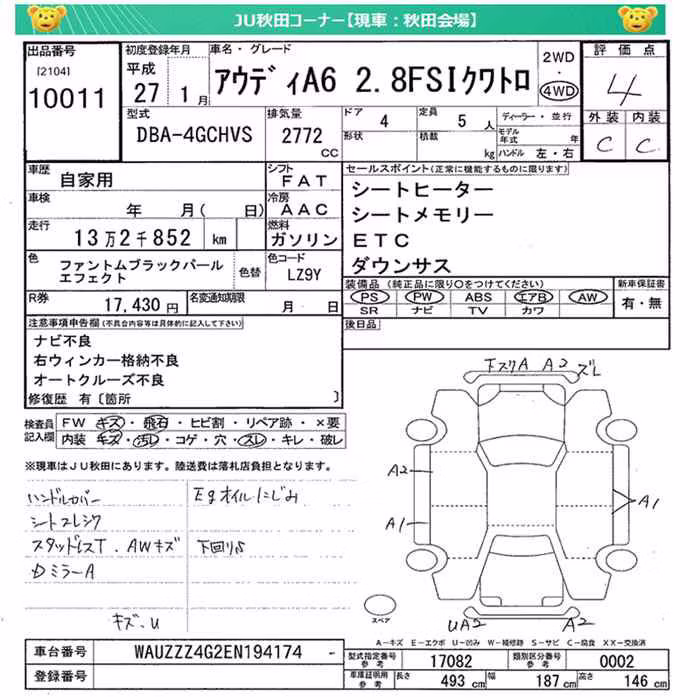 JU秋田コーナー【現車：秋田会場】
出品番号 初度登録年月 車名・グレード
[2104] 10011
平成 27 1月
アウディA6 2.8FSIクワトロ
2WD
4WD
評価点
4
外装 内装
C C
型式 DBA-4GCHVS
排気量 2772 CC
ドア 4
定員 5人
形状 積載 kg
ディーラー・並行
モデル年式 年
ハンドル 左・右
車歴 自家用
シフト FAT
車検 年 月( 日)
冷房 AAC
走行 13万2千852 km
燃料 ガソリン
色 ファントムブラックパール
エフェクト
色替
色コード LZ9Y
R券 17,430円
名変通知期限 月 日
セールスポイント(正常に機能するものに限ります)
シートヒーター
シートメモリー
ETC
ダウンサス
装備品(純正品に限り○をつけてください)
PS PW ABS エアB AW
SR ナビ TV カワ
新車保証書
有・無
後日品
注意事項申告欄(不具合内容等は具体的に記入して下さい)
ナビ不良
右ウィンカー格納不良
オートクルーズ不良
修復歴 有〔箇所 〕
検査員記入欄
FW キズ・飛石・ヒビ割・リペア跡・×要
内装 キズ・汚レ・コゲ・穴・スレ・キレ・破レ
※現車はJU秋田にあります。陸送費は落札店負担となります。
ハンドルカバー Egオイルにじみ
スタッドレスT．AWキズ
DミラーA
キズ・U
下スリA A2 ズレ
A2
A1
A1
スペア
UA2 A2
A-キズ E-エクボ U-凹み W-補修跡 S-サビ C-腐食 XX-交換済
車台番号 WAUZZZ4G2EN194174 -
登録番号
型式指定番号 参考 17082
類別区分番号 参考 0002
車庫証明用 参考 長さ 493 cm 幅 187 cm 高さ 146 cm